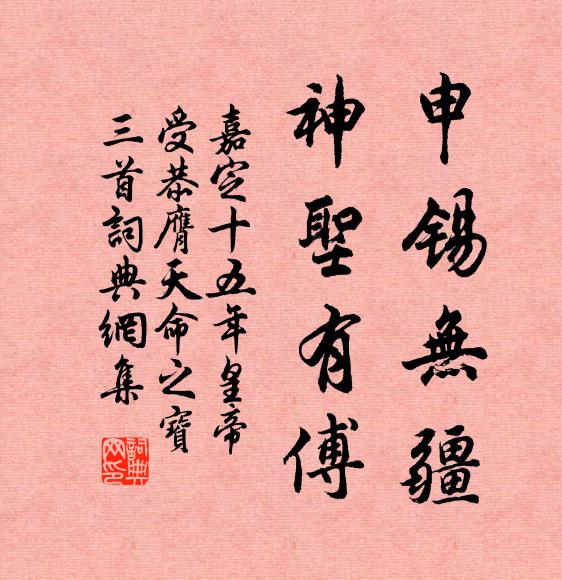 申錫無疆
神聖有傅
嘉定十五年皇帝
受恭膺天命之寶
三首詞典網集
詞典網印